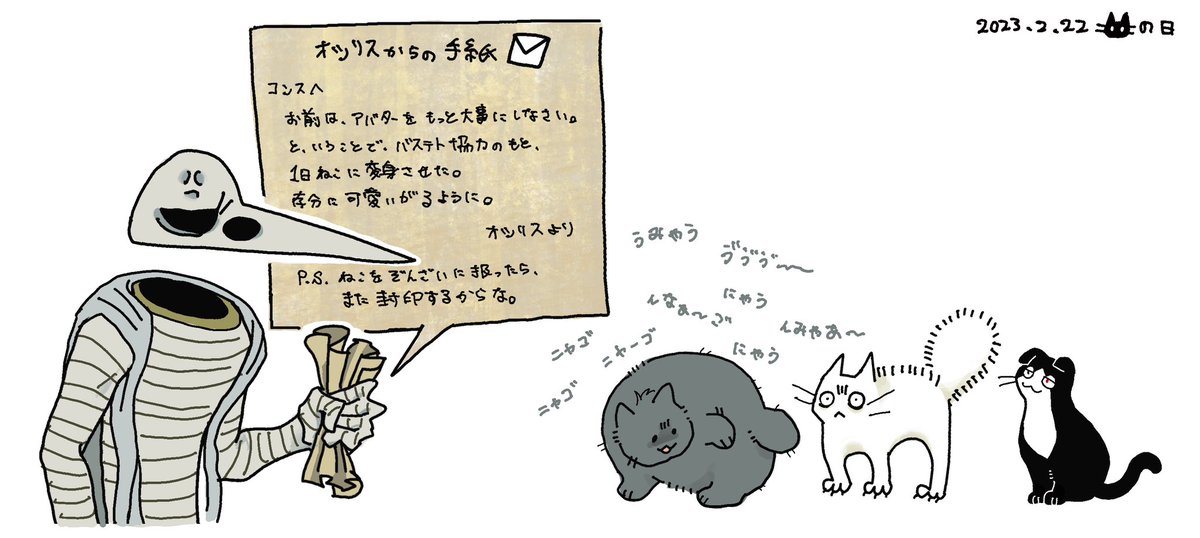 2023.2.22 の日
オシリスからの手紙
コンスへ
お前は、アバターをもっと大事にしなさい。
と、いうことで、バステト協力のもと、
1日ねこに変身させた。
存分に可愛いがるように。
オシリスより
P.S. ねこをぞんざいに扱ったら、
また封印するからな。
うみゃう
ゔゔゔ〜〜
にゃう
んみゃあ〜
ニャゴ
ニャーゴ
にゃう
ニャゴ